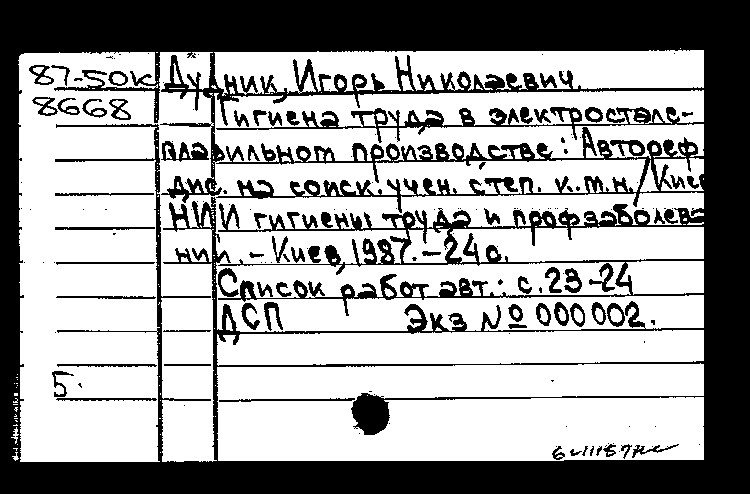 87-50к Дудник, Игорь Николаевич.
8668
Гигиена труда в электростале-
плавильном производстве: Автореф.
дис. на соиск. учен. степ. к.т.н. / Киев
НИИ гигиены труда и профзаболева
ний. - Киев, 1987. - 24 с.
Список работ авт.: с. 23-24
ДСП Экз № 000002.
5.